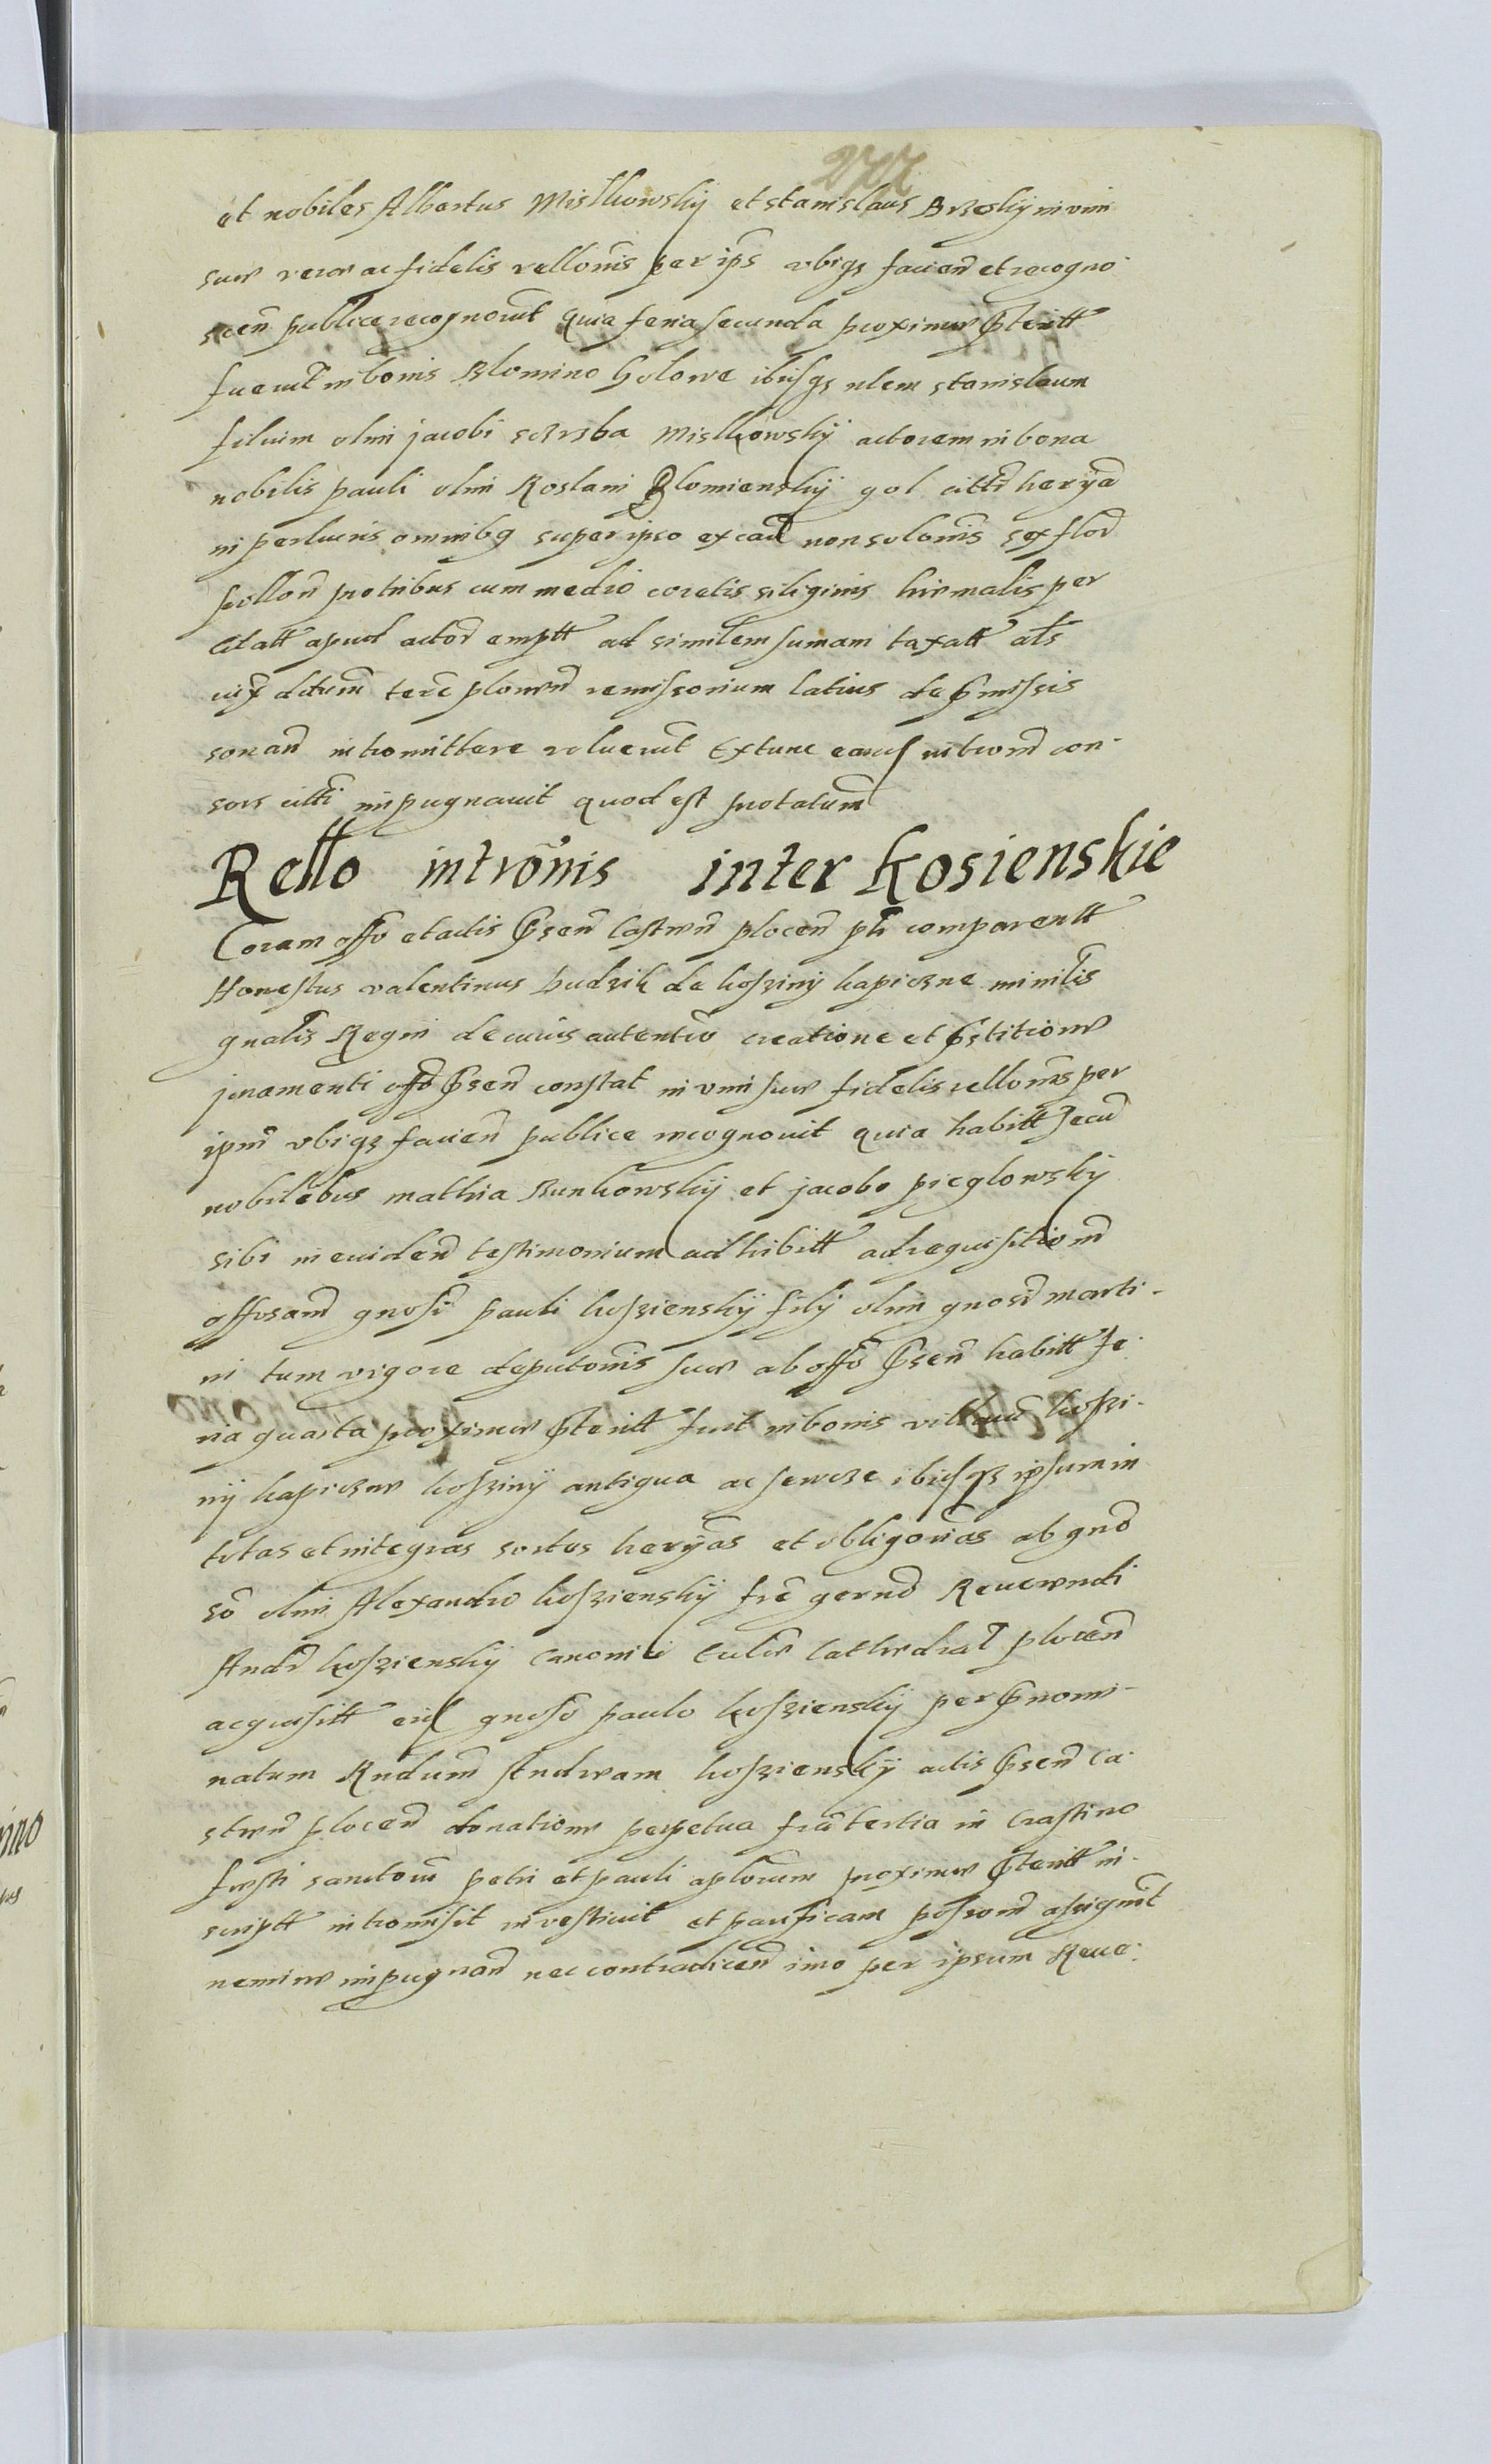 277
et nobiles Albertus Mislkowskÿ et stanislaus Brzeskÿ in vim
sue vere ac fidelis rellonis per ips vbiqz facien et recogno
scen publice recognoverut quia feria secunda proxime pteritt
fuerut in bonis Blomino Golowe ibiqz nlem stanislaum
filium olim jacobi sczyrba Mislkowskÿ actorem in bona
nobilis pauli olim Roslani Blomienskÿ gol citti herÿa
in perlucris omnibq super ipso ex cau non solonis sex flor
scillon motribus cum medio coretis siliginis hiemalis per
citatt apud actor emptt ad similem sumam taxatt als
iux dctum terre plocen remissorium latius de pmissis
sonan intromittere voluerut Extunc eand introm con
sors citti impugnauit quod est notatum
Rello intronis inter Kosienskie
Coram offo et actis psen Castren plocen pls comparentt
Honestus valentinus budzik de kosziny kapiczne minilis
gnalis Regni de cuius autentica creatione et pstitione
juramenti offo psen constat in vim sue fidelis rellonis per
ipm vbiqz facien publice recognouit quia habitt secu
nobilibus mathia Bunkowskÿ et jacobo pieglowskÿ
sibi in euiden testimonium adhibitt ad requisitionem
offosam gnosi pauli koszienskÿ filÿ olim gnosi marti
ni tum vigore deputonis sue ab offo psen habitt fe
ria quarta proxime pteritt fuit in bonis villaru koszi
nÿ kapiczne koszinÿ antiqua ac sewcze ibiqz ipsum in
totas et integras sortes herÿas et obligorias ab gno
so olim Alexandro koszienskÿ fre germo Reuerendi
Andr koszienskÿ Canonici Eccliae Cathedral plocen
acquisitt eid gnoso paulo koszienskÿ per pnomi
natum Rndum Andream koszienskÿ actis psen Ca
stren plocen donatione perpetua fria tertia in crastino
festi sanctoru petri et pauli aplorum proxime pteritt in
scriptt intromisit investiuit et pacificam possessionem assignauit
nemine impugnan nec contradicen imo per ipsum Reue